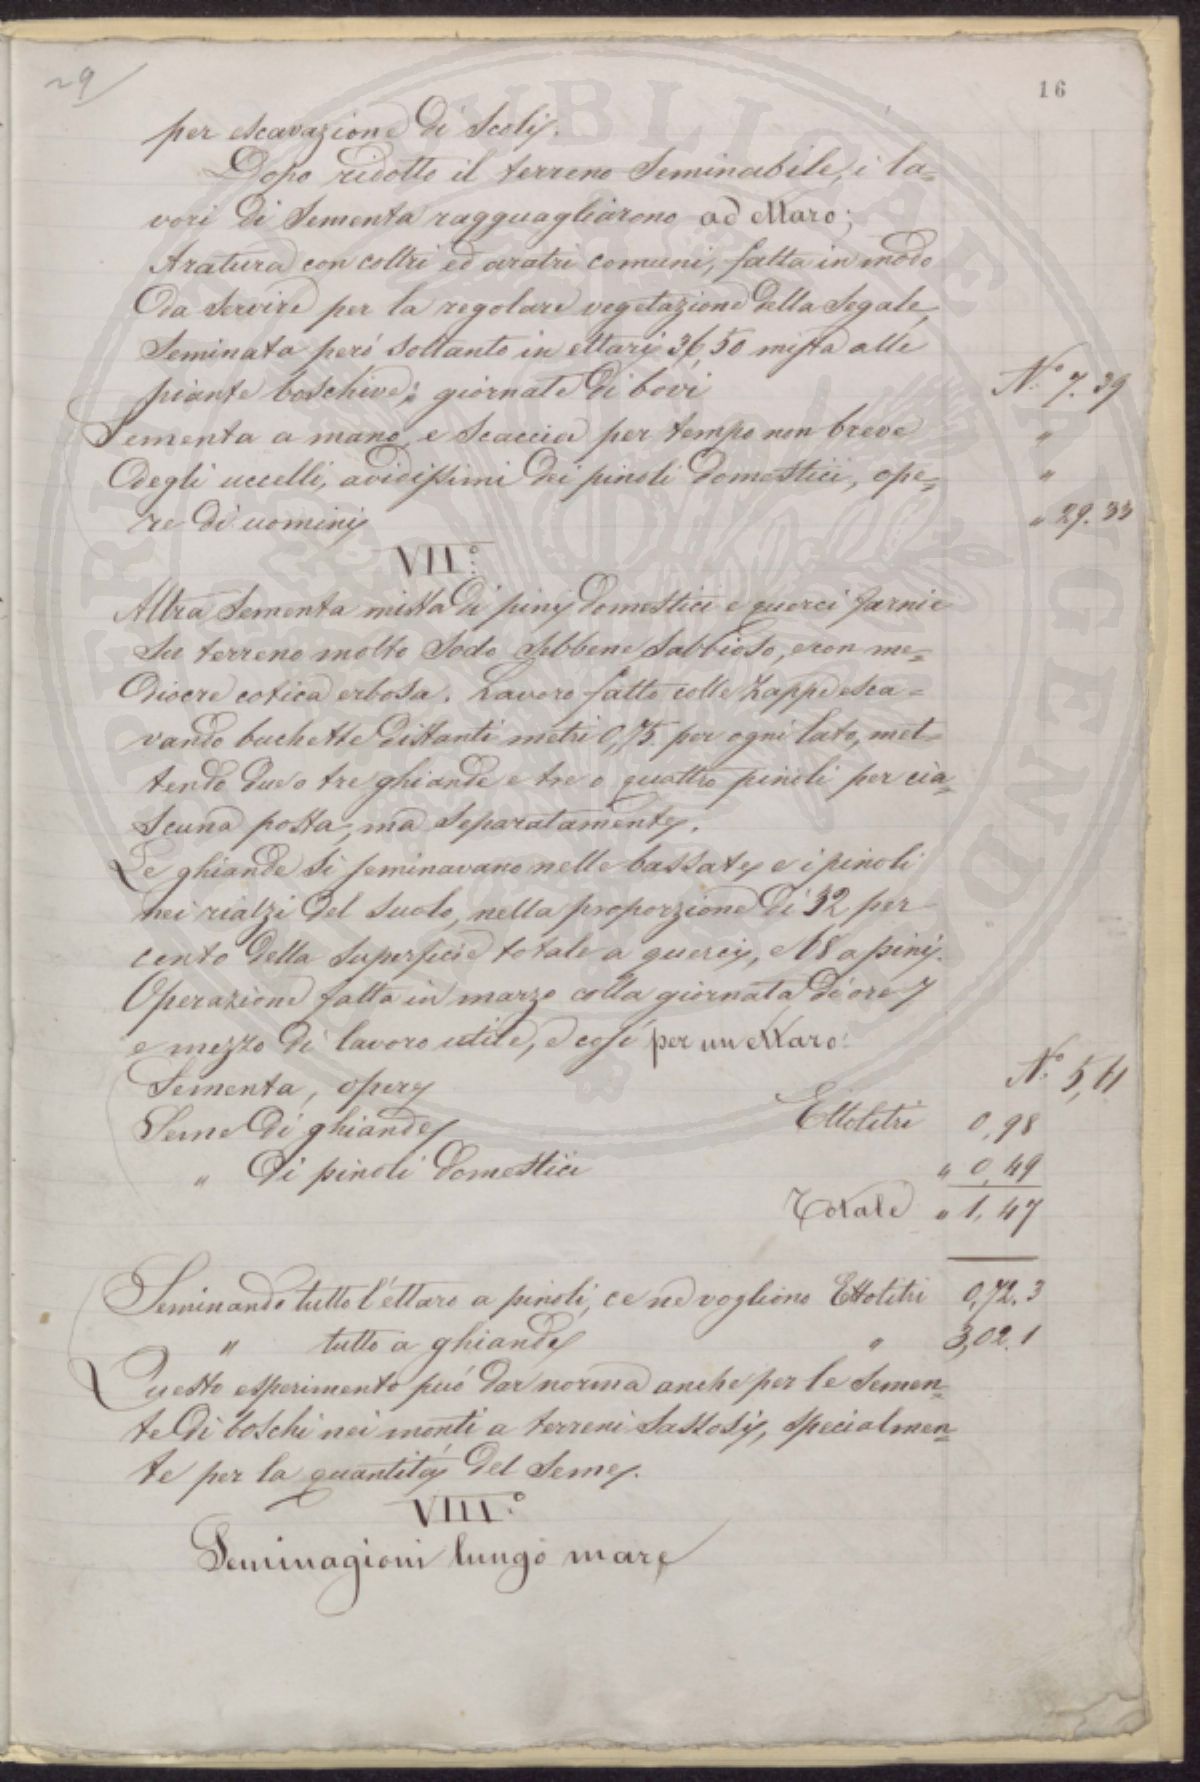 29
16
per escavazione di scoli.
Dopo ridotto il terreno seminabile, i la=
vori di sementa ragguagliarono ad ettaro;
Aratura con coltri ed aratri comuni, fatta in modo
da servire per la regolare vegetazione della segale,
seminata però soltanto in ettari 36,50 mista alle
piante boschive; giornate di bovi N.° 7.39
Sementa a mano, e scaccia per tempo non breve "
degli uccelli, avidissimi dei pinoli domestici, ope= "
re di uomini " 29.33
VII.°
Altra sementa mista di pini domestici e querci farnie
su terreno molto sodo sebbene sabbioso, e con me=
diocre cotica erbosa. Lavoro fatto colle zappe esca=
vando buchette distanti metri 0,75. per ogni lato, met=
tendo due o tre ghiande e tre o quattro pinoli per cia=
scuna posta, ma separatamente.
Le ghiande si seminavano nelle bassate e i pinoli
nei rialzi del suolo, nella proporzione di 32 per
cento della superficie totale a querci, e 68 a pini.
Operazione fatta in marzo colla giornata di ore 7
e mezzo di lavoro utile, e così per un ettaro:
Sementa, opere N.° 5,11
Seme di ghiande Ettolitri 0,98
" di pinoli domestici " 0,49
Totale " 1,47
Seminando tutto l'ettaro a pinoli, ce ne vogliono Ettolitri 0,72.3
" tutto a ghiande " 3,02.1
Questo esperimento può dar norma anche per le semen=
te di boschi nei monti a terreni sassosi, specialmen=
te per la quantità del seme.
VIII.°
Seminagioni lungo mare